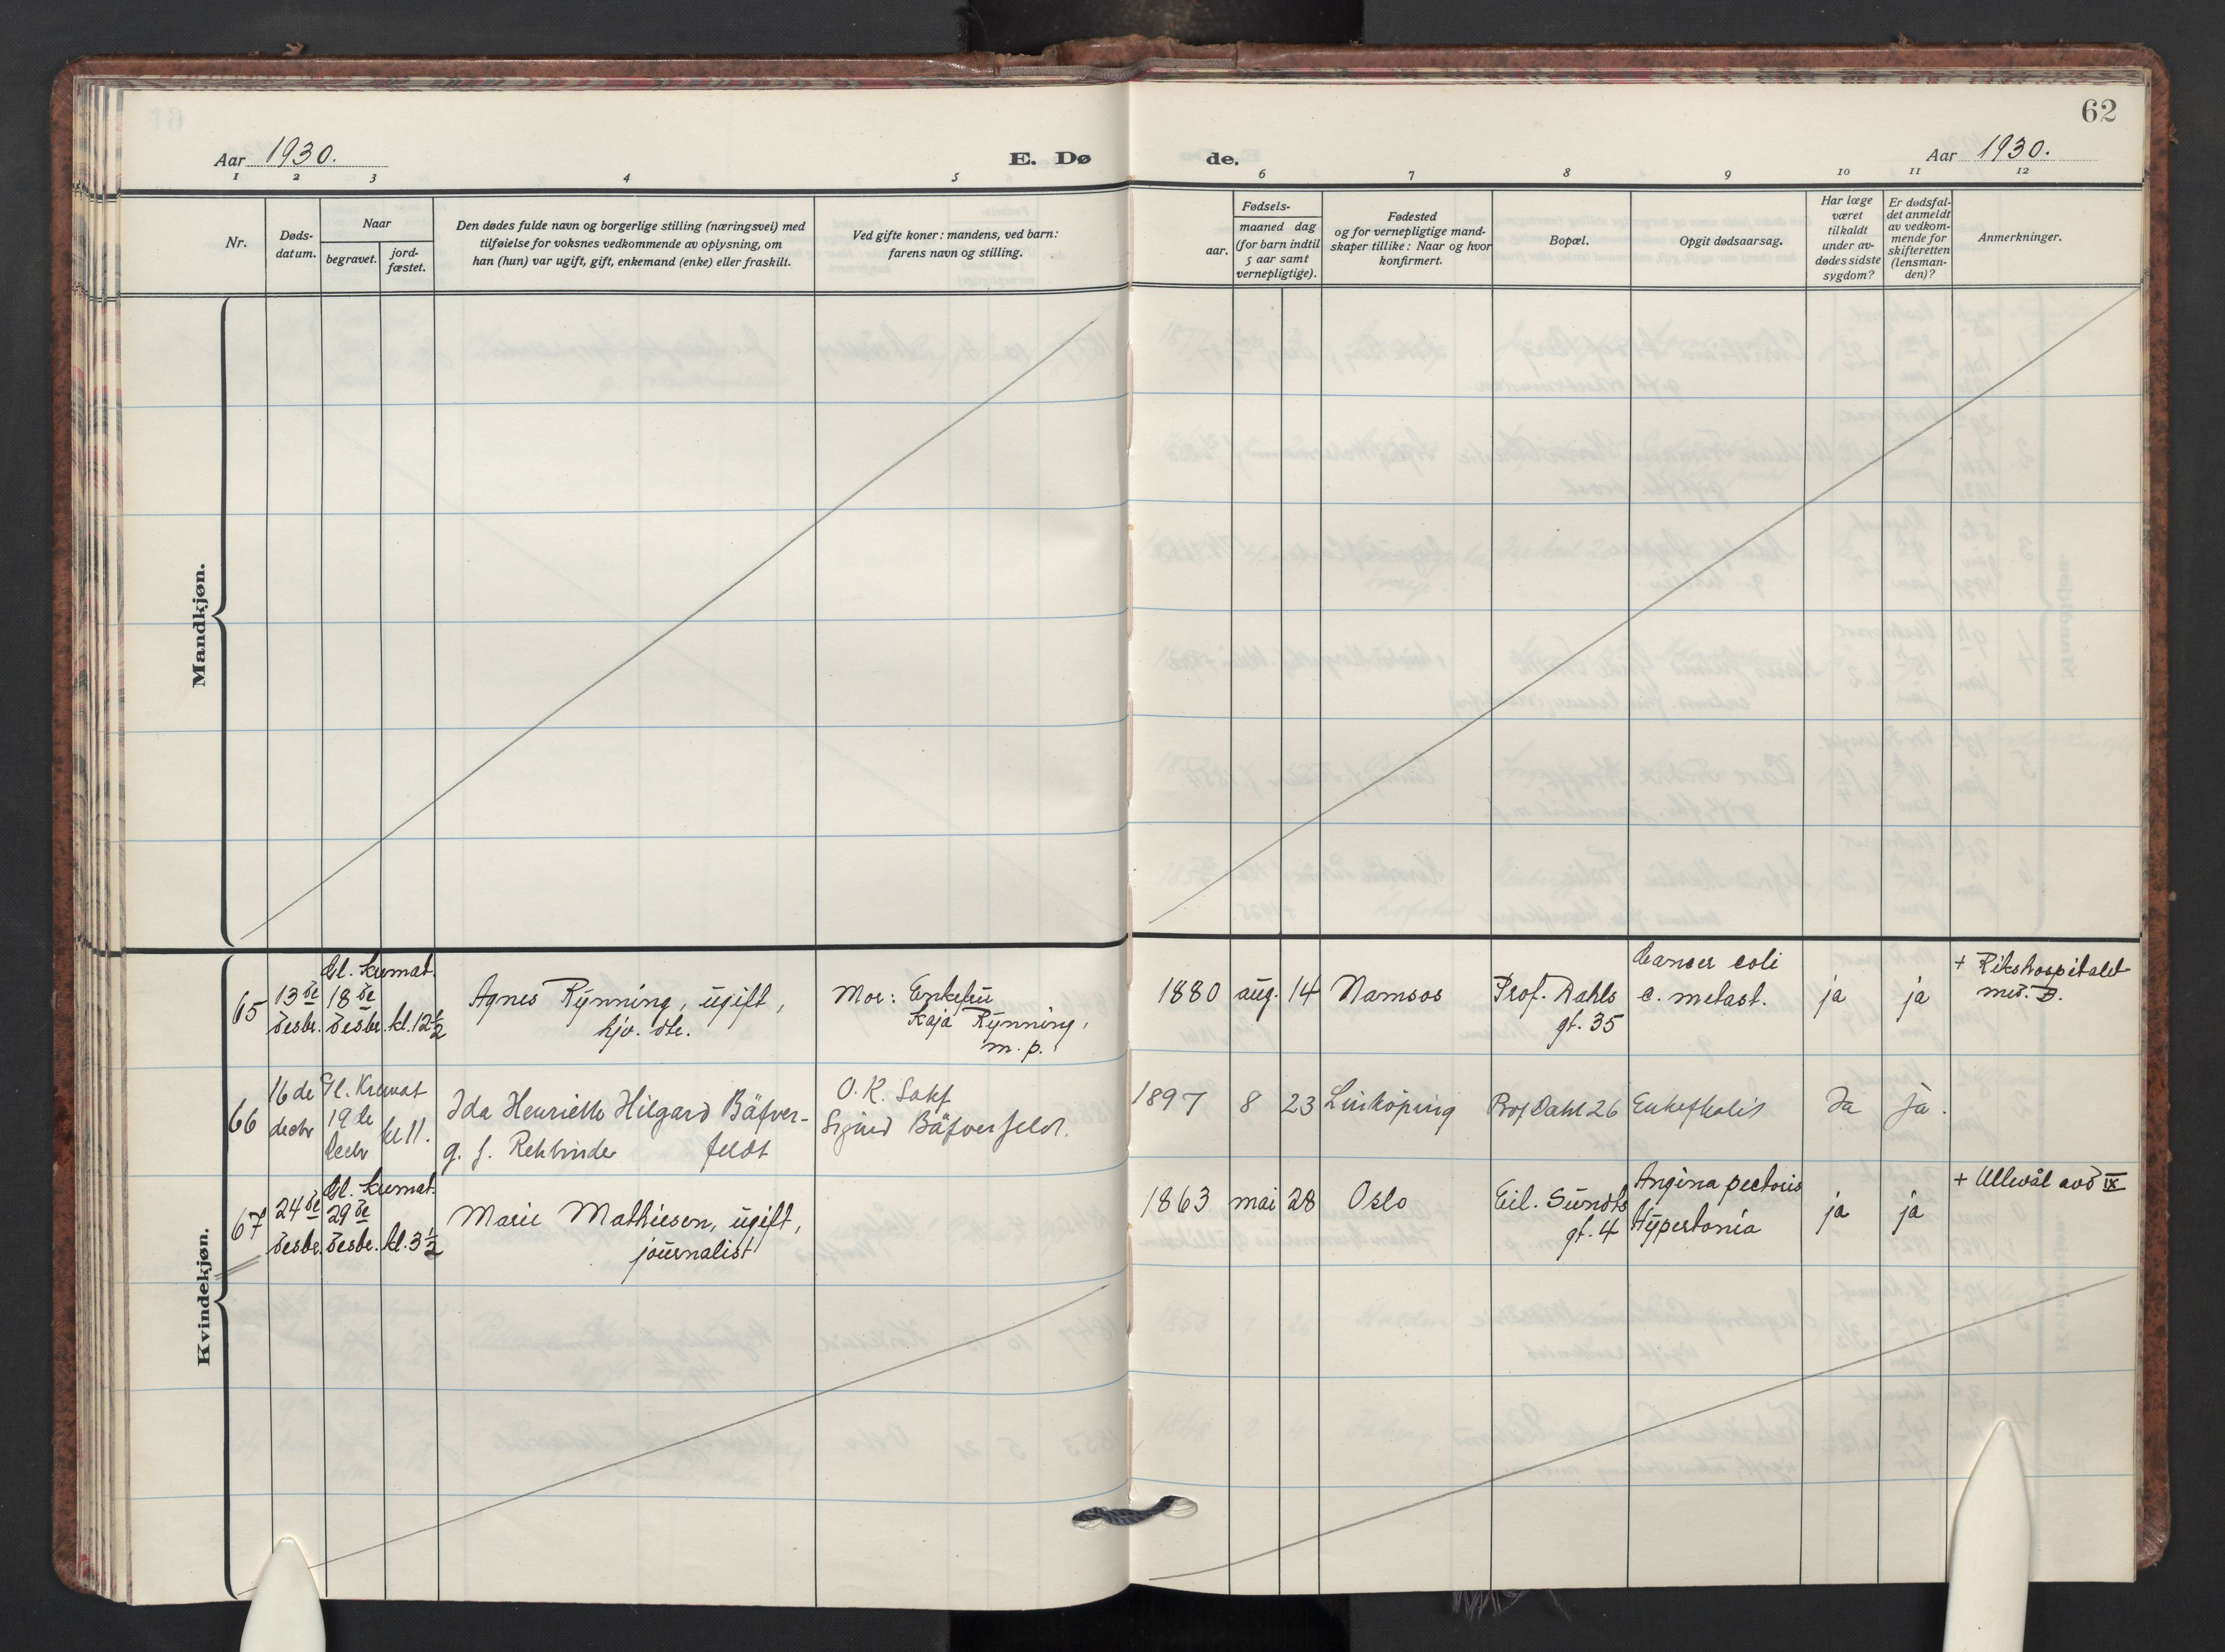 62
Aar 1930.
E. Dø
de.
Aar 1930.
1 2 3 4 5
6 7 8 9 10 11 12
Nr.
Døds-
datum.
Naar
begravet.
jord-
fæstet.
Den dødes fulde navn og borgerlige stilling (næringsvei) med
tilføielse for voksnes vedkommende av oplysning, om
han (hun) var ugift, gift, enkemand (enke) eller fraskilt.
Ved gifte koner: mandens, ved barn:
farens navn og stilling.
Fødsels-
aar.
maaned dag
(for barn indtil
5 aar samt
vernepligtige).
Fødested
og for vernepligtige mand-
skaper tillike: Naar og hvor
konfirmert.
Bopæl.
Opgit dødsaarsag.
Har læge
været
tilkaldt
under av-
dødes sidste
sygdom?
Er dødsfal-
det anmeldt
av vedkom-
mende for
skifteretten
(lensman-
den)?
Anmerkninger.
Mandkjøn.
Kvindekjøn.
65
13 de
desbr.
Gl. kremat.
18 de
desbr.
kl. 12 1/2
Agnes Rynning, ugift,
hjv. dtr.
Mor: Enkefru
Kaja Rynning,
m. p.
1880 aug. 14 Namsos
Prof. Dahls
gt. 35
Cancer coli
c. metast.
ja
ja
+ Rikshospitalet
med.
66
16 de
decbr
Gl. Kremat
19 de
decbr
kl 11.
Ida Henriette Hilgard Bäfver-
feldt
g. f. Rehbinder
O. K. Sakf
Sigurd Bäfverfeldt.
1897 8 23 Linköping
Prof Dahl 26
Ja
ja.
67
24 de
desbr.
Gl. kremat.
29 de
desbr.
kl. 3 1/2
Marie Mathiesen, ugift,
journalist
1863 mai 28 Oslo
Eil. Sundts
gt. 4
Angina pectoris
Hypertonia
ja
ja
+ Ullevål avd IX